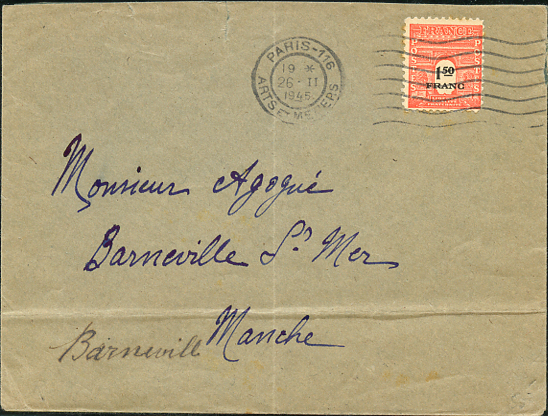 PARIS-116
19 *
26-II
1945
ARTS ET METIERS
FRANCE
POSTES
POSTES
1 50
FRANC
Monsieur Agogué
Barneville Sr Mer
Manche
Barnevill